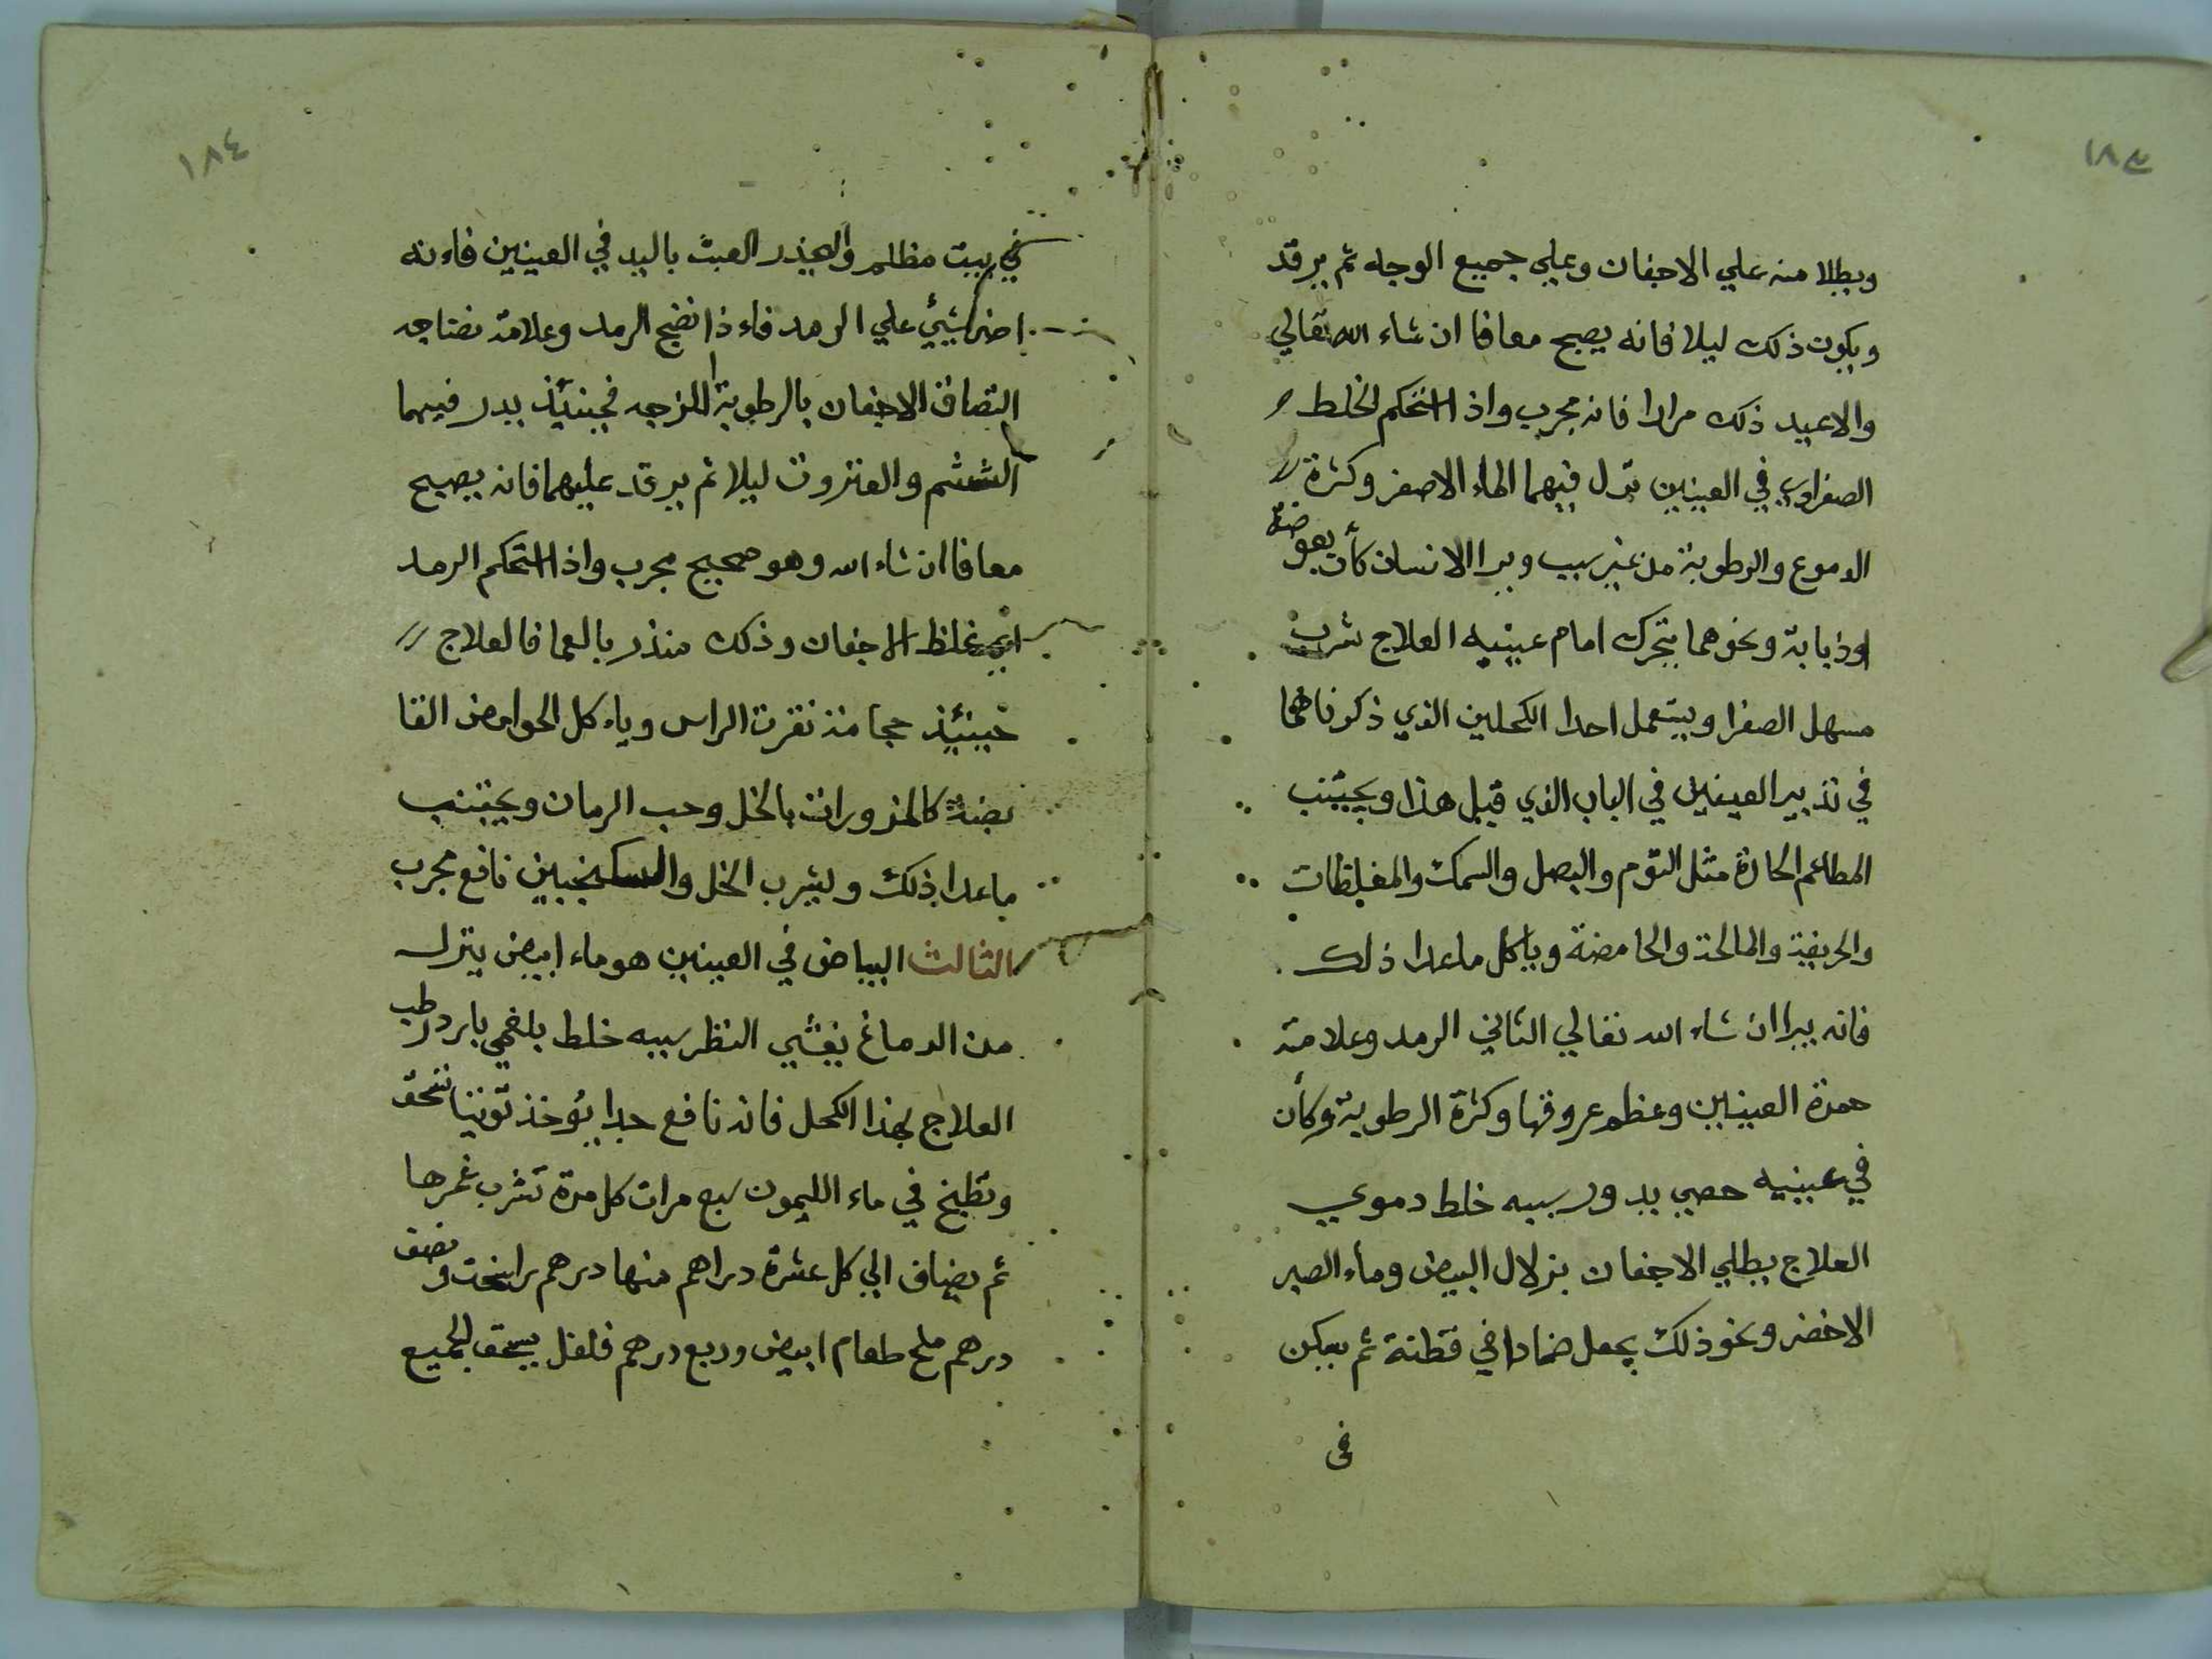 ١٨٣
ويطلا منه علي الاجفان وعلي جميع الوجه ثم يرقد
ويكون ذلك ليلا فانه يصبح معافا ان شاء الله تعالي
والا عيد ذلك مرارا فانه مجرب واذا استحكم الخلط
الصفراوي في العينين نزل فيهما الماء الاصفر وكثرة
الدموع والرطوبة من غير سبب ويرا الانسان كأن بعوضة
اوذبابة ونحوهما يتحرك امام عينيه العلاج شرب
مسهل الصفرا ويستعمل احدا الكحلين الذي ذكرناهما
في تدبير العينين في الباب الذي قبل هذا ويجتنب
المطاعم الحارة مثل الثوم والبصل والسمك والمغلظات
والحريفة والمالحة والحامضة وياكل ماعدا ذلك
فانه يبرا ان شاء الله تعالي الثاني الرمد وعلامته
حمرة العينين وعظم عروقها وكثرة الرطوبة وكأن
في عينيه حصي يدور سببه خلط دموي
العلاج يطلي الاجفان بزلال البيض وماء الصبر
الاخضر ونحو ذلك يجعل ضمادا في قطنة ثم يسكن
في
١٨٤
في بيت مظلم واليحذر العبث باليد في العينين فاءنه
اضر شيئ علي الرمد فاءذا نضج الرمد وعلامة نضاجه
التصاق الاجفان بالرطوبة اللزجه فحينئذ يدر فيهما
الششم والعنزروت ليلا ثم يرقد عليهما فانه يصبح
معافا ان شاء الله وهو صحيح مجرب واذا استحكم الرمد
غلظ الاجفان وذلك منذر بالعما فالعلاج
حينئذ حجامة نقرت الراس وياءكل الحوامض القا
بضة كالمزورات بالخل وحب الرمان ويجتنب
ماعدا ذلك ويشرب الخل والسكنجبين نافع مجرب
الثالث البياض في العينين هو ماء ابيض ينزل
من الدماغ يغشي النظر سببه خلط بلغمي بارد رطب
العلاج بهذا الكحل فانه نافع جدا يؤخذ توتيا تسحق
وتطبخ في ماء الليمون سبع مرات كل مرة تشرب غمرها
ثم يضاف الي كل عشرة دراهم منها درهم راسخت ونصف
درهم ملح طعام ابيض وربع درهم فلفل يسحق الجميع